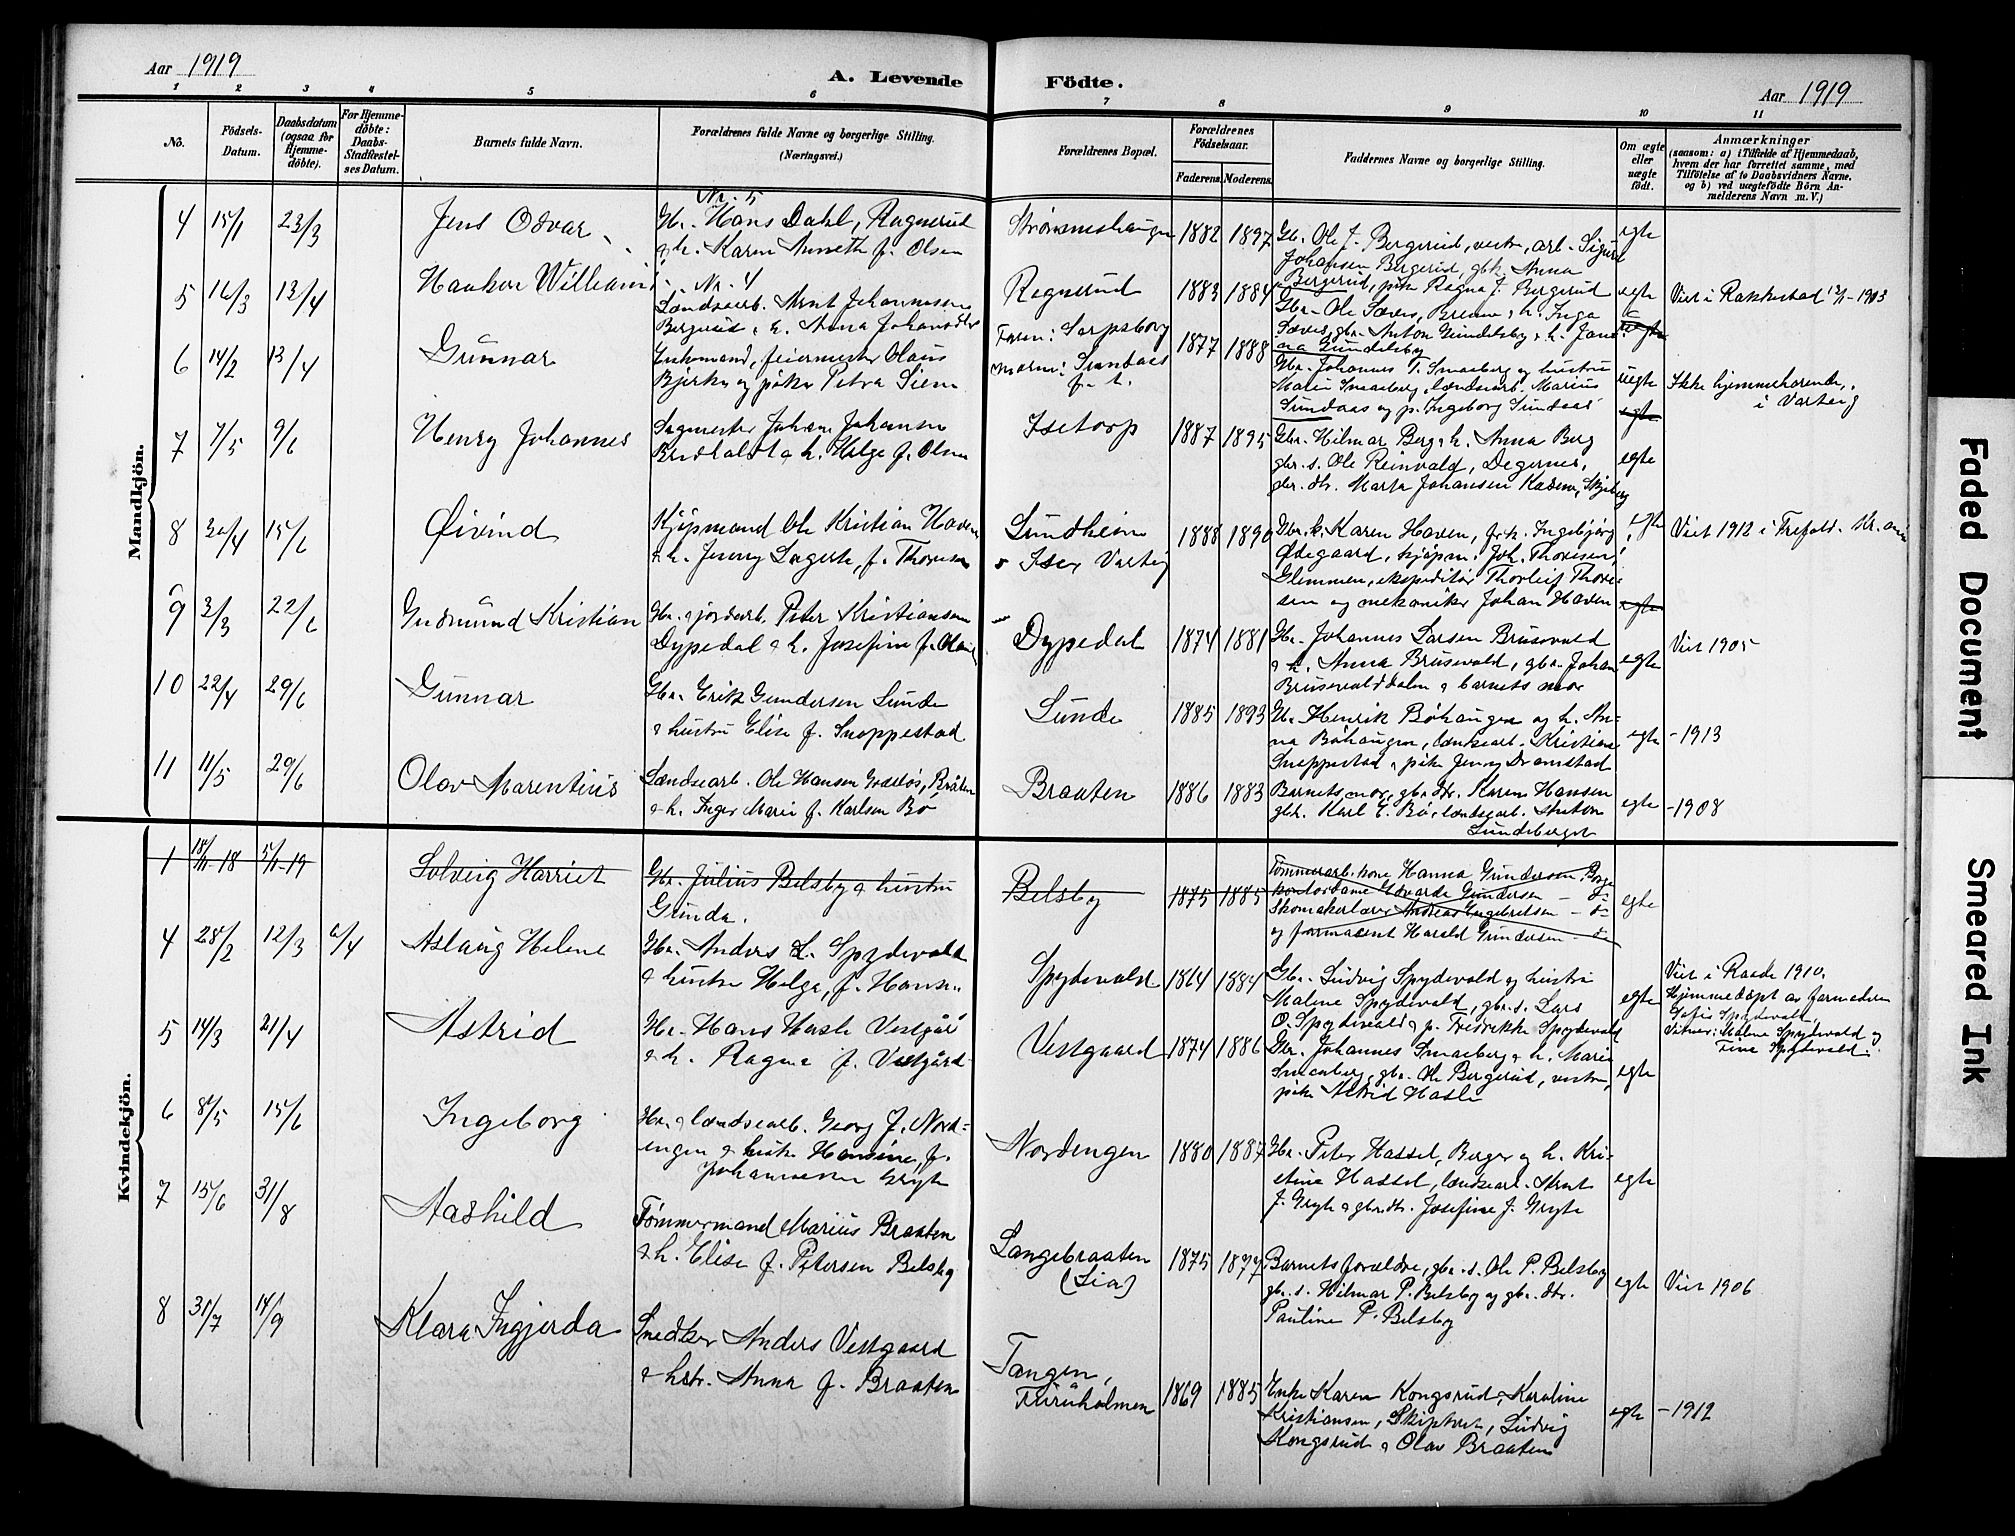 Aar 1919
A. Levende Födte.
Aar 1919
1 2 3 4 5 6 7 8 9 10 11
No.
Födsels-Datum.
Daabsdatum (ogsaa for Hjemme-döbte).
For Hjemme-döbte: Daabs-Stadfæstel-ses Datum.
Barnets fulde Navn.
Forældrenes fulde Navne og borgerlige Stilling.
(Næringsvei.)
Forældrenes Bopæl.
Forældrenes Födselsaar.
Faderens. Moderens.
Faddernes Navne og borgerlige Stilling.
Om ægte eller uægte født.
Anmærkninger
(saasom: a) i Tilfælde af Hjemmedaab,
hvem der har forrettet samme, med
Tilföielse af to Daabsvidners Navne,
og b) ved uægtefödte Börn An-
melderens Navn m. V.)
Mandkjön.
Nr. 5
4 15/1 23/3 Jens Odvar
Gbr. Hans Dahl, Ragnerud
& h. Karen Anneth f. Olsen
Strømneshaugen 1882 1897
Gb. Ole J. Bergerud, vestre, arb. Sigurd
Johansen Bergerud, gbk. Anna
Bergerud, pike Ragna J. Bergerud
egte
5 16/3 13/4 Haakon William
Nr. 4
Landsarb. Arnt Johannessen
Bergerud & h. Anna Johansdtr
Ragnerud 1883 1884
Gbr. Ole Sæves, Brenne & h. Inga
Sæves, gbr. Anton Gundelsby & h. Jand
na Gundelsby
egte
Viet i Rakkestad 1903
6 14/2 13/4 Gunnar
Enkemand, feiermester Olaus
Bjerke og pike Petra Siem
Faren: Sarpsborg
moren: Sundaas
f. t.
1877 1888
Gbr. Johannes T. Smaaberg og hustru
Maren Smaaberg, landsearb. Marius
Sundaas og p. Ingeborg Sundaas
uegte
Ikke hjemmehørende
i Varteig
7 7/5 9/6 Henry Johannes
Sagmester Johan Johansen
& h. Helga f. Olsen
Isetorp 1887 1895
Gbr. Hilmar Berg & h. Anna Berg
gbr. s. Ole Reinvald, Degernes,
gbr. dtr. Marta Johansen Kasene, Skjeberg
egte
8 30/4 15/6 Øivind
Kjøpmand Ole Kristian Haven
& h. Jenny Lagerta, f. Thoresen
Sundheim
Iser Varteig
1888 1890
Gbr. k. Karen Haven, fr. k. Ingebjørg
Ødegaard, kjøpm. Joh. Thoresen,
Glemmen, ekspeditør Thorleif Thore-
sen og mekaniker Johan Haven
egte
Viet 1912 i Trefold. Kr.ania
9 3/3 22/6 Gudmund Kristian
Gbr. & jordarb. Peter Kristiansen
Dypedal & h. Josefine f. Olsen
Dypedal 1874 1881
Gbr. Johannes Larsen Brusevald
& h. Anna Brusevald, gbr. Johan
Brusevalddalen & barnets mor
egte
Viet 1905
10 22/4 29/6 Gunnar
Gbr. Erik Gundersen Sunde
& hustru Elise f. Snoppestad
Sunde 1885 1893
Gbr. Henrik Bøhaugen og h. An-
na Bøhaugen, landsearb. Kristian
Snoppestad & pike Jenny Dramstad
egte
- 1913
11 11/5 29/6 Olav Marentius
Landsearb. Ole Hansen Grødløs, Bråten
& h. Inger Marie f. Karlsen Bø
Braaten 1886 1883
Barnets mor, gbr. dtr. Karen Hansen
gbr. Karl E. Bø, landsearb. Anton
Sundsberget
egte
- 1908
Kvindekjön.
1 18/11-18 5/1-19 Solveig Harriet
Gbr. Julius Belsby & hustru
Gunda.
Belsby 1875 1885
Tømmerarb. kone Hanna Gundersen Borge
kontordame Edvarda Gundersen - do
Skomakerlærer Andreas Engebretsen - do
og farmacent Harald Gundersen - do
egte
4 28/2 12/3 6/4 Aslaug Helene
Gbr. Anders L. Spydevold
& hustru Helga, f. Hansen
Spydevold 1864 1884
Gbr. Ludvig Spydevold og hustru
Malene Spydevold, gbr. s. Lars
O. Spydevold & p. Fredrikke Spydevold
egte
Viet i Raade 1910.
Hjemmedøpt av farmoderen
Sofie Spydevold.
Vitner: Malene Spydevold og
Tina Spydevold.
5 14/3 21/4 Astrid
Gbr. Hans Hasle Vestgård
& h. Ragna f. Vestgård
Vestgaard 1874 1886
Gbr. Johannes Smaaberg & h. Marie
Smaaberg, gbr. Ole Bergerud, vestre,
pike Astrid Hasle
egte
6 8/5 15/6 Ingeborg
Gbr. & landsearb. Georg J. Nord-
engen & hustr. Hansine, f.
Johannesen Gryte
Nordengen 1880 1887
Gbr. Peter Hassel, Berger og h. Kri-
stine Hassel, landsearb. Arnt
J. Gryte & gbr.dtr. Josefine J. Gryte
egte
7 15/6 31/8 Aashild
Tømmermand Marius Braaten
& h. Elise f. Petersen Belsby
Langebraaten
(Lia)
1875 1877
Barnets forældre, gbr. s. Ole P. Belsby
gbr. s. Wilmar P. Belsby og gbr. dtr.
Pauline P. Belsby
egte
Viet 1906
8 31/7 14/9 Klara Ingjerda
Snedker Anders Vestgaard
& hstr. Anna f. Braaten
Tangen,
Furuholmen
1869 1885
Enke Karen Kongsrud, Karoline
Kristiansen, Skiptvet, Ludvig
Kongsrud & Olav Braaten
egte
- 1912
Faded Document
Smeared Ink